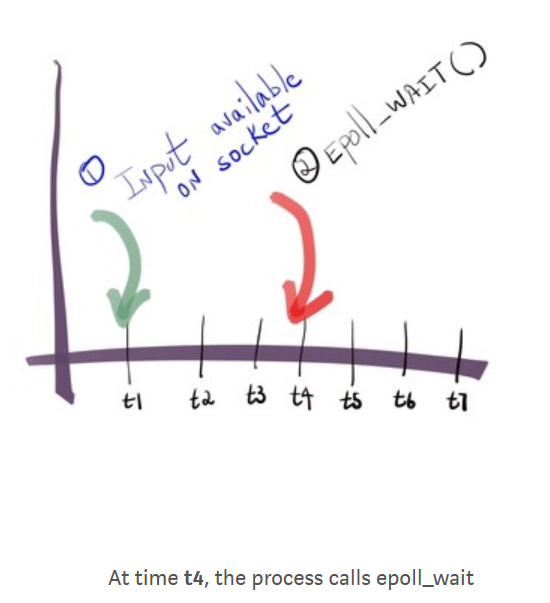 ① Input available
on socket
② Epoll_WAIT()
t1 t2 t3 t4 t5 t6 t7
At time t4, the process calls epoll_wait